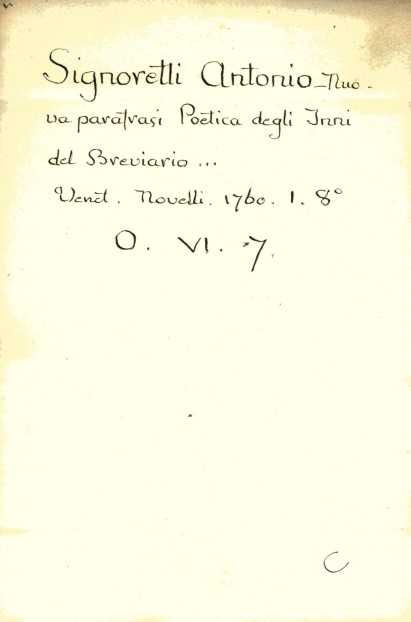 Signoretti Antonio - Nuo-
va parafrasi Poetica degli Inni
del Breviario ...
Venet. Novelli. 1760. 1. 8°
O. VI. 7.
C